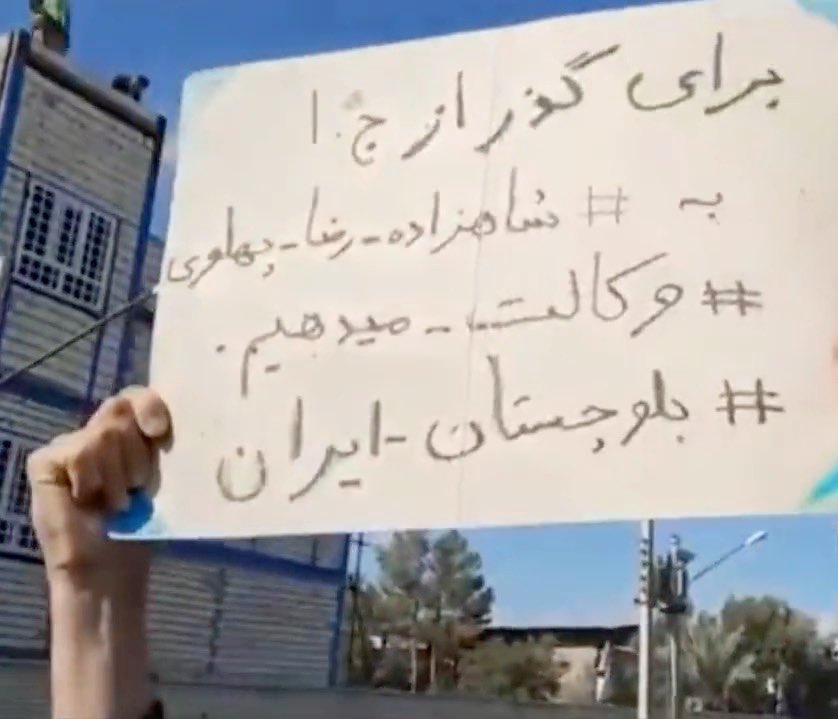 برای گذر از ج.ا
به #شاهزاده-رضا-پهلوی
#وکالت-میدهیم.
#بلوچستان-ایران